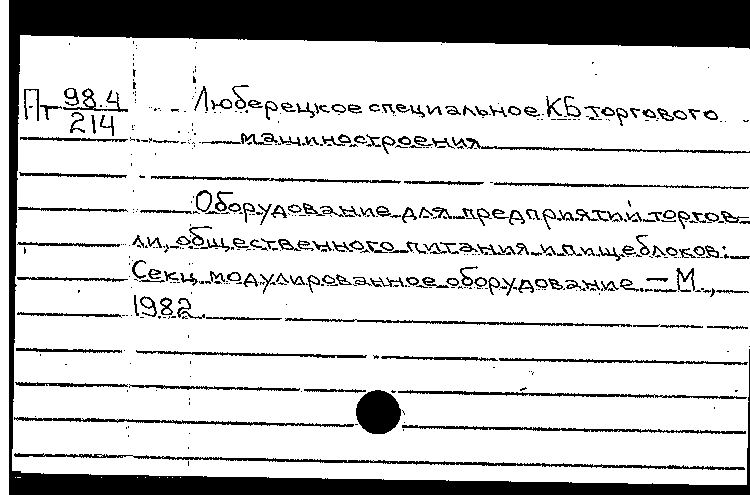 Пт 98.4
214
Люберецкое специальное КБ торгового
машиностроения
Оборудование для предприятий торгов-
ли, общественного питания и пищеблоков:
Секц. модулированное оборудование. — М.,
1982.